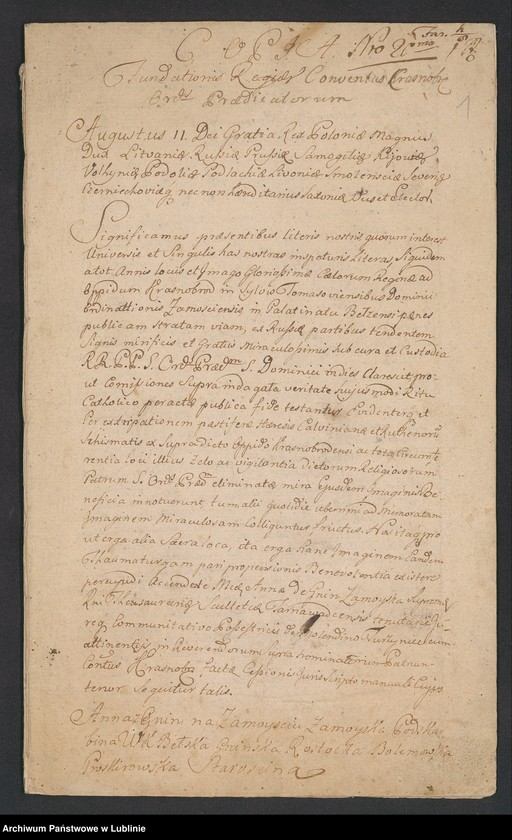 COPIA. Nro 2
Fundationis Regiæ Conventus Krasnobr:
Ord: Prædicatorum
1
Augustus II. Dei Gratia Rex Poloniæ Magnus
Dux Litvaniæ Russiæ Prussiæ Samogitiæ Kijoviæ
Volhyniæ Podoliæ Podlachiæ Livoniæ Smolensciæ Severiæ
Czerniechoviæq nec non hæreditarius Saxoniæ Dux et Elector.
Significamus præsentibus literis nostris quorum interest
Universis et Singulis has nostras inspecturis Literas, Siquidem
a tot Annis locus et Imago Gloriosissimæ Cælorum Reginæ ad
Oppidum Krasnobrod in Sylvis Tomasoviensibus Dominii
Ordinationis Zamoscensis in Palatinatu Belzensi penes
publicam stratam viam, ex Russiæ partibus tendentem
Signis mirificis et Gratiis Miraculosissimis sub cura et Custodia
RR. PP. S. Ord: Præd: S. Dominici in dies Clarescit pro-
ut Comissiones Supra indagata veritate hujusmodi Ritu
Catholico peractæ publica fide testantur Evidenter, et
Per extirpationem pestiferæ Hæresis Calvinianæ et Ruthenorum
Schismatis ex Supradicto Oppido Krasnobrodensi ac tota circumfe-
rentia loci illius Zelo ac vigilantia dictorum Religiosorum
Patrum S. Ord: Præd: eliminatæ mira Ejusdem Imaginis Be-
neficia innotuerunt tum alii quotidie uberrimi ad Memoratam
Imaginem Miraculosam Colliguntur fructus. Nos itaq pro
ut erga alia Sacra loca, ita erga hanc Imaginem Eandem
Thaumaturgam pari propensionis Benevolentia existere
percupidi Accendente Mcæ Annæ de Gnin Zamoyska Supremæ
Rni Thesaurariæ
req Communitativo
attinentiis in Reverendorum Supra nominatorum Patrum
Contus Krasnobr: factæ Cessionis Juris Scripto manuali Cujus
tenor Sequitur talis.
Anna z Gnin na Zamoysciu Zamoyska Podskar-
bina WK Belska Gninska Rostocka Bolemowska
Proskirowska Starościna
Archiwum Państwowe w Lublinie